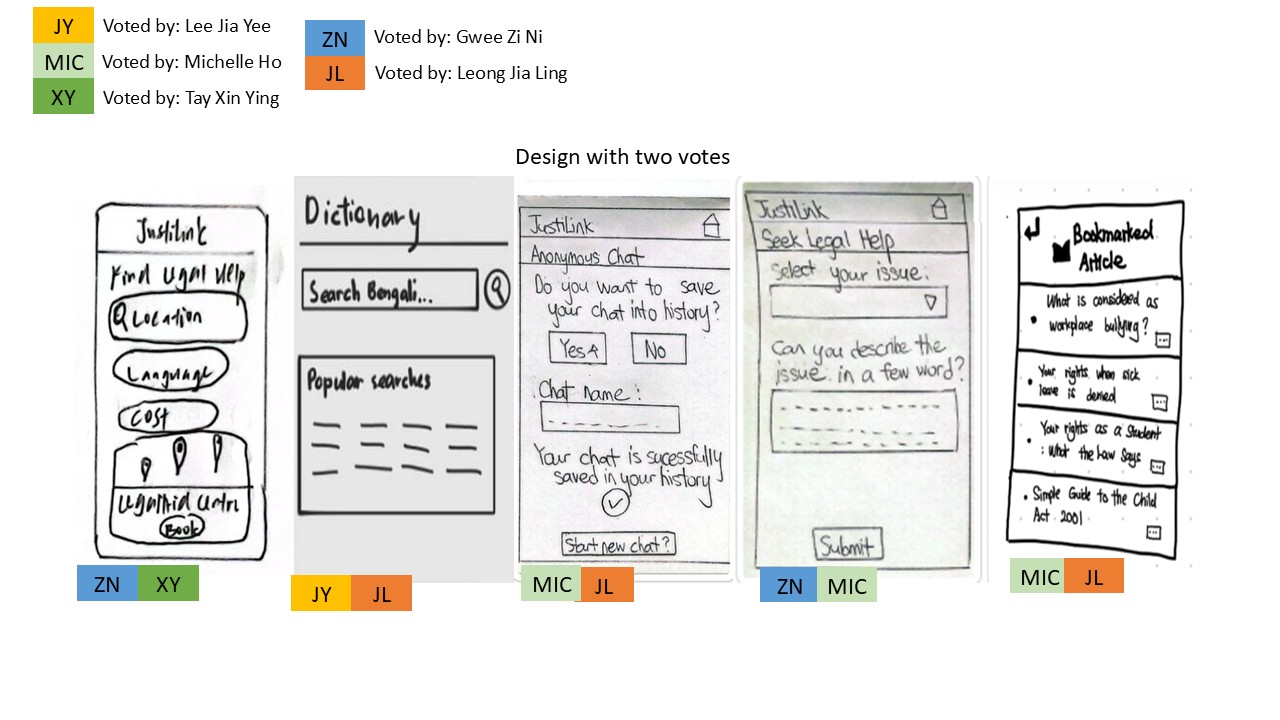 JY
Voted by: Lee Jia Yee
MIC
Voted by: Michelle Ho
XY
Voted by: Tay Xin Ying
ZN
Voted by: Gwee Zi Ni
JL
Voted by: Leong Jia Ling
Design with two votes
JustiLink
Find Legal Help
Location
Language
Cost
Book
ZN XY
Dictionary
Search Bengali...
Popular searches
JY JL
JustiLink
Anonymous Chat
Do you want to save
your chat into history?
Yes
No
Chat name :
Your chat is sucessfully
saved in your history
Start new chat?
MIC JL
JustiLink
Seek Legal Help
Select your issue:
Can you describe the
issue in a few word?
Submit
ZN MIC
Bookmarked
Article
• What is considered as
workplace bullying?
• Your rights when sick
leave is denied
• Your rights as a Student
: What the Law Says
• Simple Guide to the Child
Act 2001
MIC JL